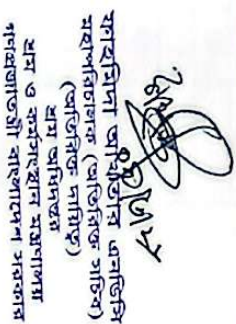 ফাহমিদা আখতার এনডিসি
মহাপরিদর্শক (অতিরিক্ত সচিব)
(অতিরিক্ত দায়িত্ব)
শ্রম অধিদপ্তর
শ্রম ও কর্মসংস্থান মন্ত্রণালয়
গণপ্রজাতন্ত্রী বাংলাদেশ সরকার